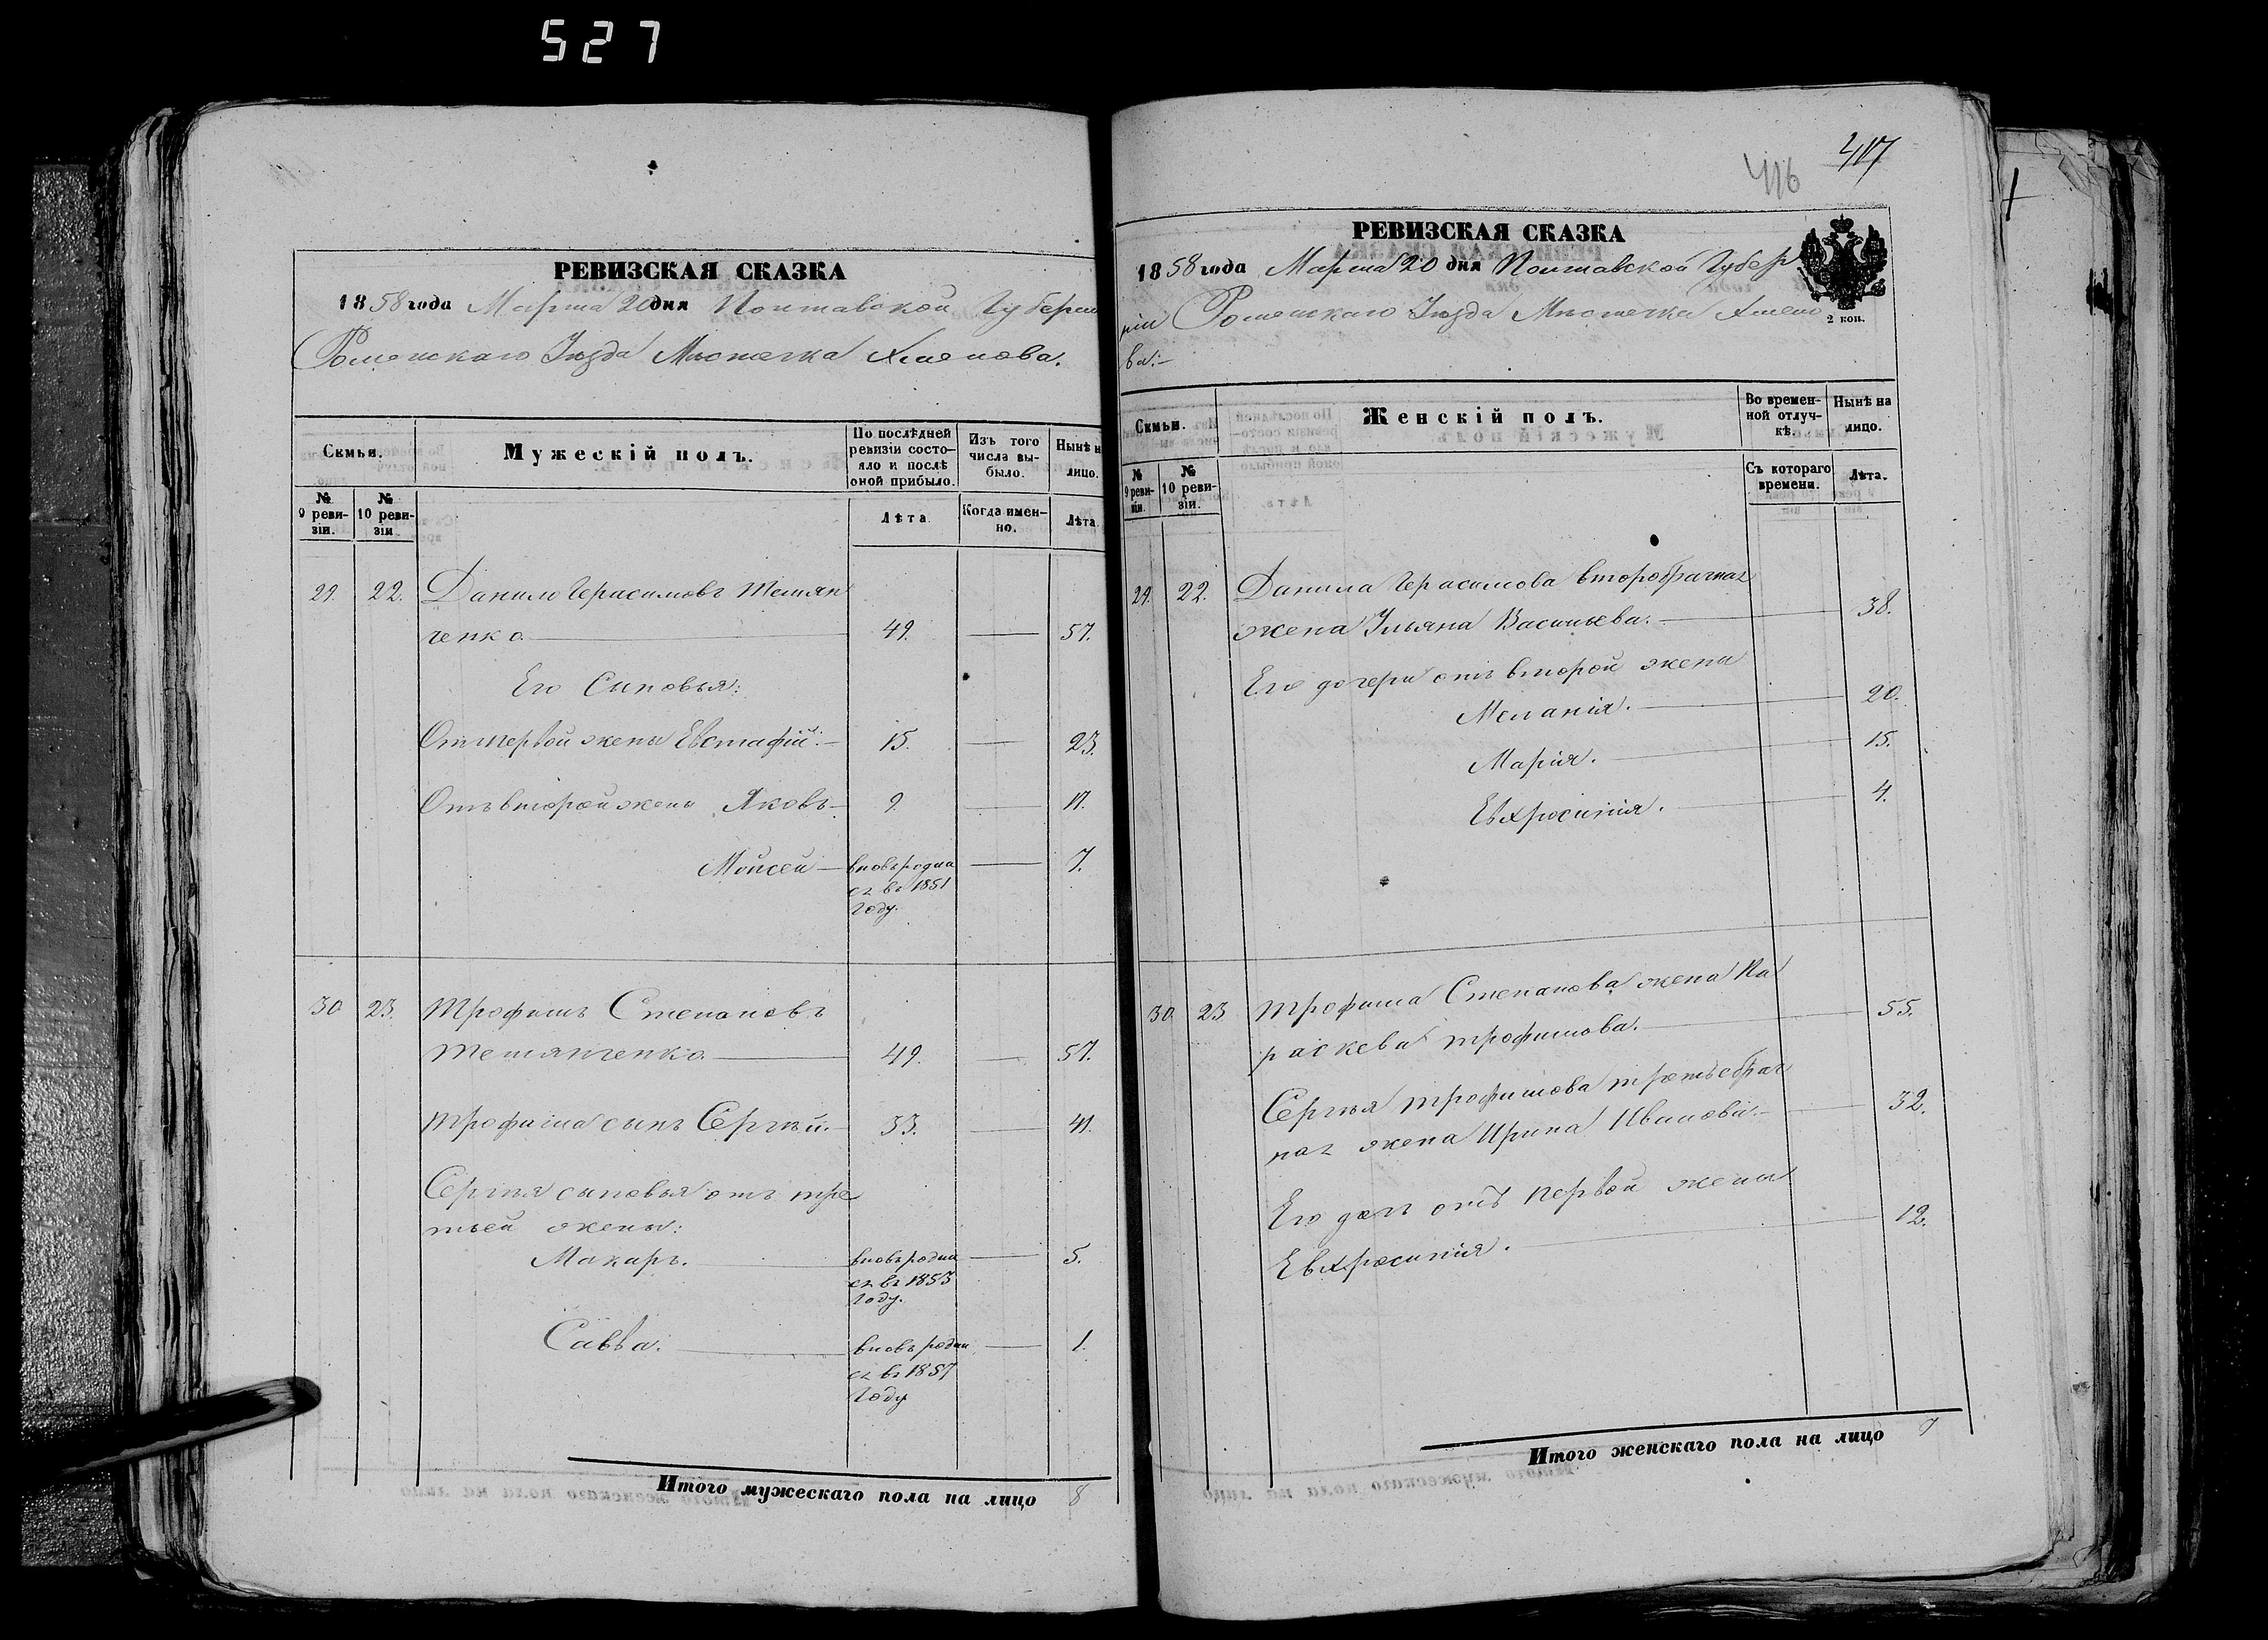 527
РЕВИЗСКАЯ СКАЗКА
1858 года Марта 20 дня Полтавской Губерніи
Роменскаго Уѣзда Мѣстечка Хмелова.
Семьи.
Мужескій полъ.
По послѣдней ревизіи состояло и послѣ оной прибыло.
Изъ того числа выбыло.
Нынѣ на лицо.
№ 9 ревизіи.
№ 10 ревизіи
Лѣта
Когда именно.
Лѣта
29. 22. Данило Герасимовъ Темян
ченко. 49. 57.
Его Сыновья:
Отъ первой жены Евстафій. 15. 23.
Отъ второй жены Яковъ 9 17.
Мойсей вновь родил 7.
ся въ 1851
Году.
30 23. Трофимъ Степановъ
Темянченко. 49. 57.
Трофима сынъ Сергѣй. 33. 41.
Сергѣя сыновья отъ тре
тьей жены:
Макаръ. вновь родил 5.
ся въ 1853
Году.
Савва. вновь родил 1.
ся въ 1857
Году
Итого мужескаго пола на лицо 8
416 417
РЕВИЗСКАЯ СКАЗКА
1858 года Марта 20 дня Полтавской Губер
ніи Роменскаго Уѣзда Мѣстечка Хмело
ва:
2 коп.
Семьи.
Женскій полъ.
Во временной отлучкѣ.
Нынѣ на лицо.
№ 9 ревизіи.
№ 10 ревизіи.
Съ котораго времени.
Лѣта.
29. 22. Данила Герасимова второбрачная
жена Ульяна Васильева. 38.
Его дочери отъ второй жены
Меланія. 20.
Марія. 15.
Евхросинія. 4.
30. 23 Трофима Степанова жена Па
раскева Трофимова. 55.
Сергѣя Трофимова третьебрач
ная жена Ирина Иванова. 32.
Его дочь отъ первой жены
Евхросинія. 12.
Итого женскаго пола на лицо 7